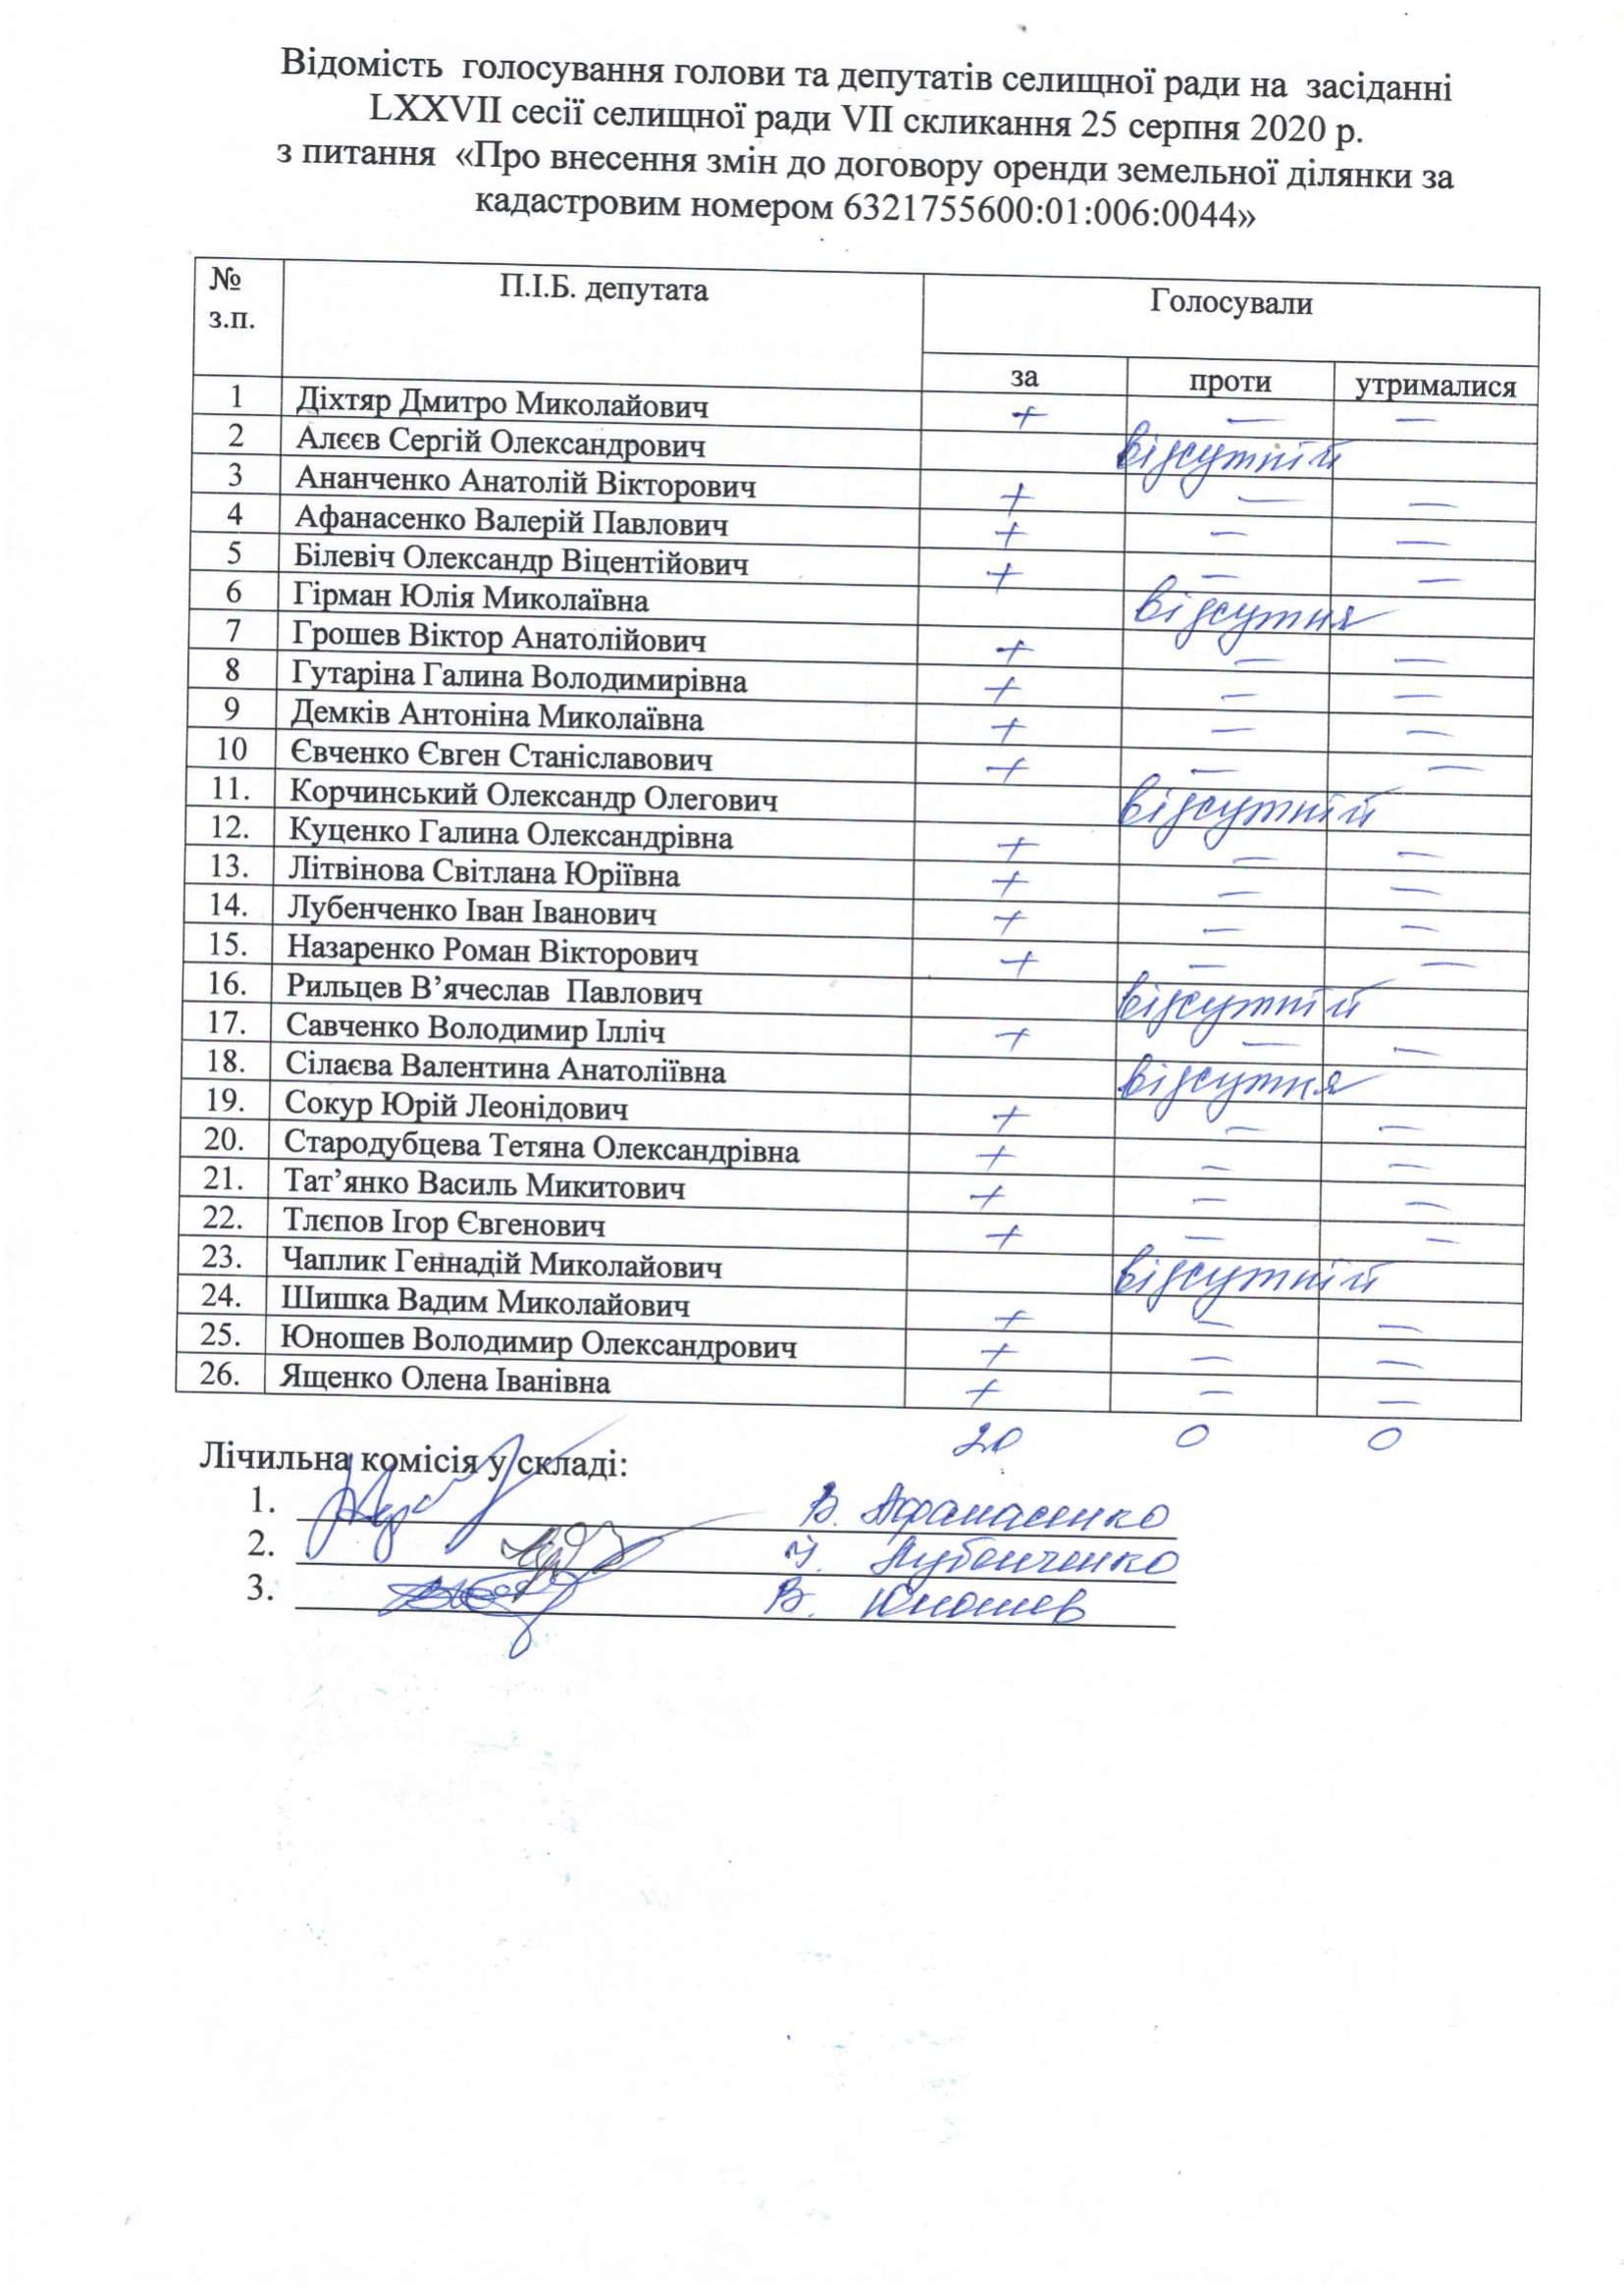 Відомість голосування голови та депутатів селищної ради на засіданні
LXXVII сесії селищної ради VII скликання 25 серпня 2020 р.
з питання «Про внесення змін до договору оренди земельної ділянки за
кадастровим номером 6321755600:01:006:0044»
№ з.п. П.І.Б. депутата Голосували
за проти утрималися
1 Діхтяр Дмитро Миколайович + — —
2 Алєєв Сергій Олександрович відсутній
3 Ананченко Анатолій Вікторович + — —
4 Афанасенко Валерій Павлович + — —
5 Білевіч Олександр Віцентійович + — —
6 Гірман Юлія Миколаївна відсутня
7 Грошев Віктор Анатолійович + — —
8 Гутаріна Галина Володимирівна + — —
9 Демків Антоніна Миколаївна + — —
10 Євченко Євген Станіславович + — —
11. Корчинський Олександр Олегович відсутній
12. Куценко Галина Олександрівна + — —
13. Літвінова Світлана Юріївна + — —
14. Лубенченко Іван Іванович + — —
15. Назаренко Роман Вікторович + — —
16. Рильцев В’ячеслав Павлович відсутній
17. Савченко Володимир Ілліч + — —
18. Сілаєва Валентина Анатоліївна відсутня
19. Сокур Юрій Леонідович + — —
20. Стародубцева Тетяна Олександрівна + — —
21. Тат’янко Василь Микитович + — —
22. Тлєпов Ігор Євгенович + — —
23. Чаплик Геннадій Миколайович відсутній
24. Шишка Вадим Миколайович + — —
25. Юношев Володимир Олександрович + — —
26. Ященко Олена Іванівна + — —
20 0 0
Лічильна комісія у складі:
1. В. Афанасенко
2. І. Лубенченко
3. В. Юношев